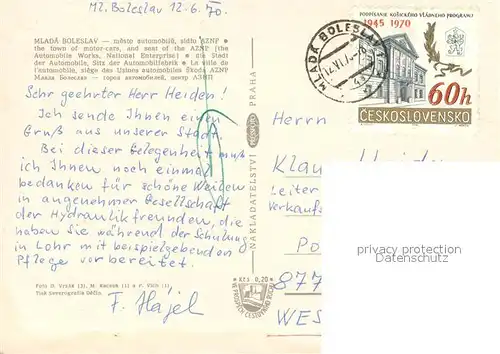 Ml. Boleslav 12.6.70.
MLADÁ BOLESLAV — město automobilů, sídlo AZNP
the town of motor-cars, and seat of the AZNP (the
Automobile Works, National Enterprise) die Stadt
der Automobile, Sitz der Automobilfabrik La ville de
l'automobile, siège des Usines automobiles Škoda AZNP
Млада Болеслав — город автомобилей, центр АЗНП
Sehr geehrter Herr Heiden!
Ich sende Ihnen einen
Gruß aus unserer Stadt.
Bei dieser Gelegenheit muß
ich Ihnen noch einmal
bedanken für schöne Weilen
in angenehmer Gesellschaft
der Hydraulikfreunden, die
haben Sie während der Schulung
in Lohr mit beispielgebenden
Pflege vorbereitet.
F. Hájel
Tisk Severografia Děčín
NAKLADATELSTVÍ
PRAHA
XZ5 0,20
MLADÁ BOLESLAV
PODPÍSANIE KOŠICKÉHO VLÁDNEHO PROGRAMU
1945 1970
60h
ČESKOSLOVENSKO
Herrn
Leiter
Verkaufs
877
WES
privacy protection
Datenschutz